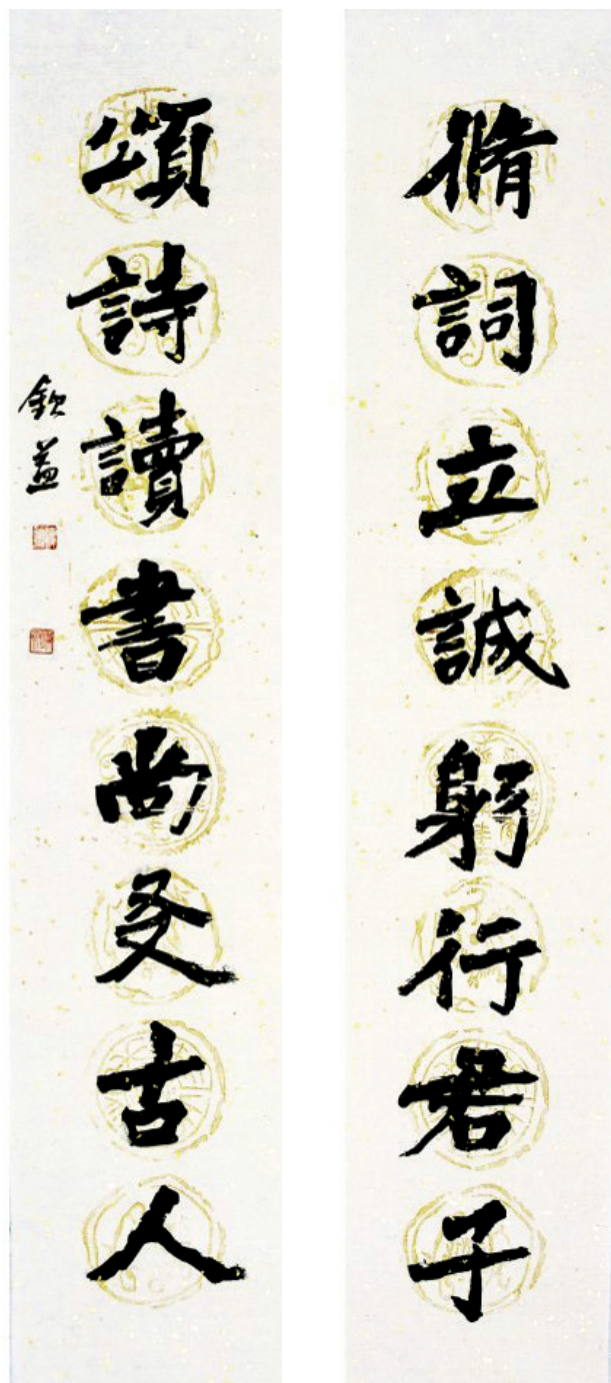 脩詞立誠躬行君子
頌詩讀書尚友古人
欽益